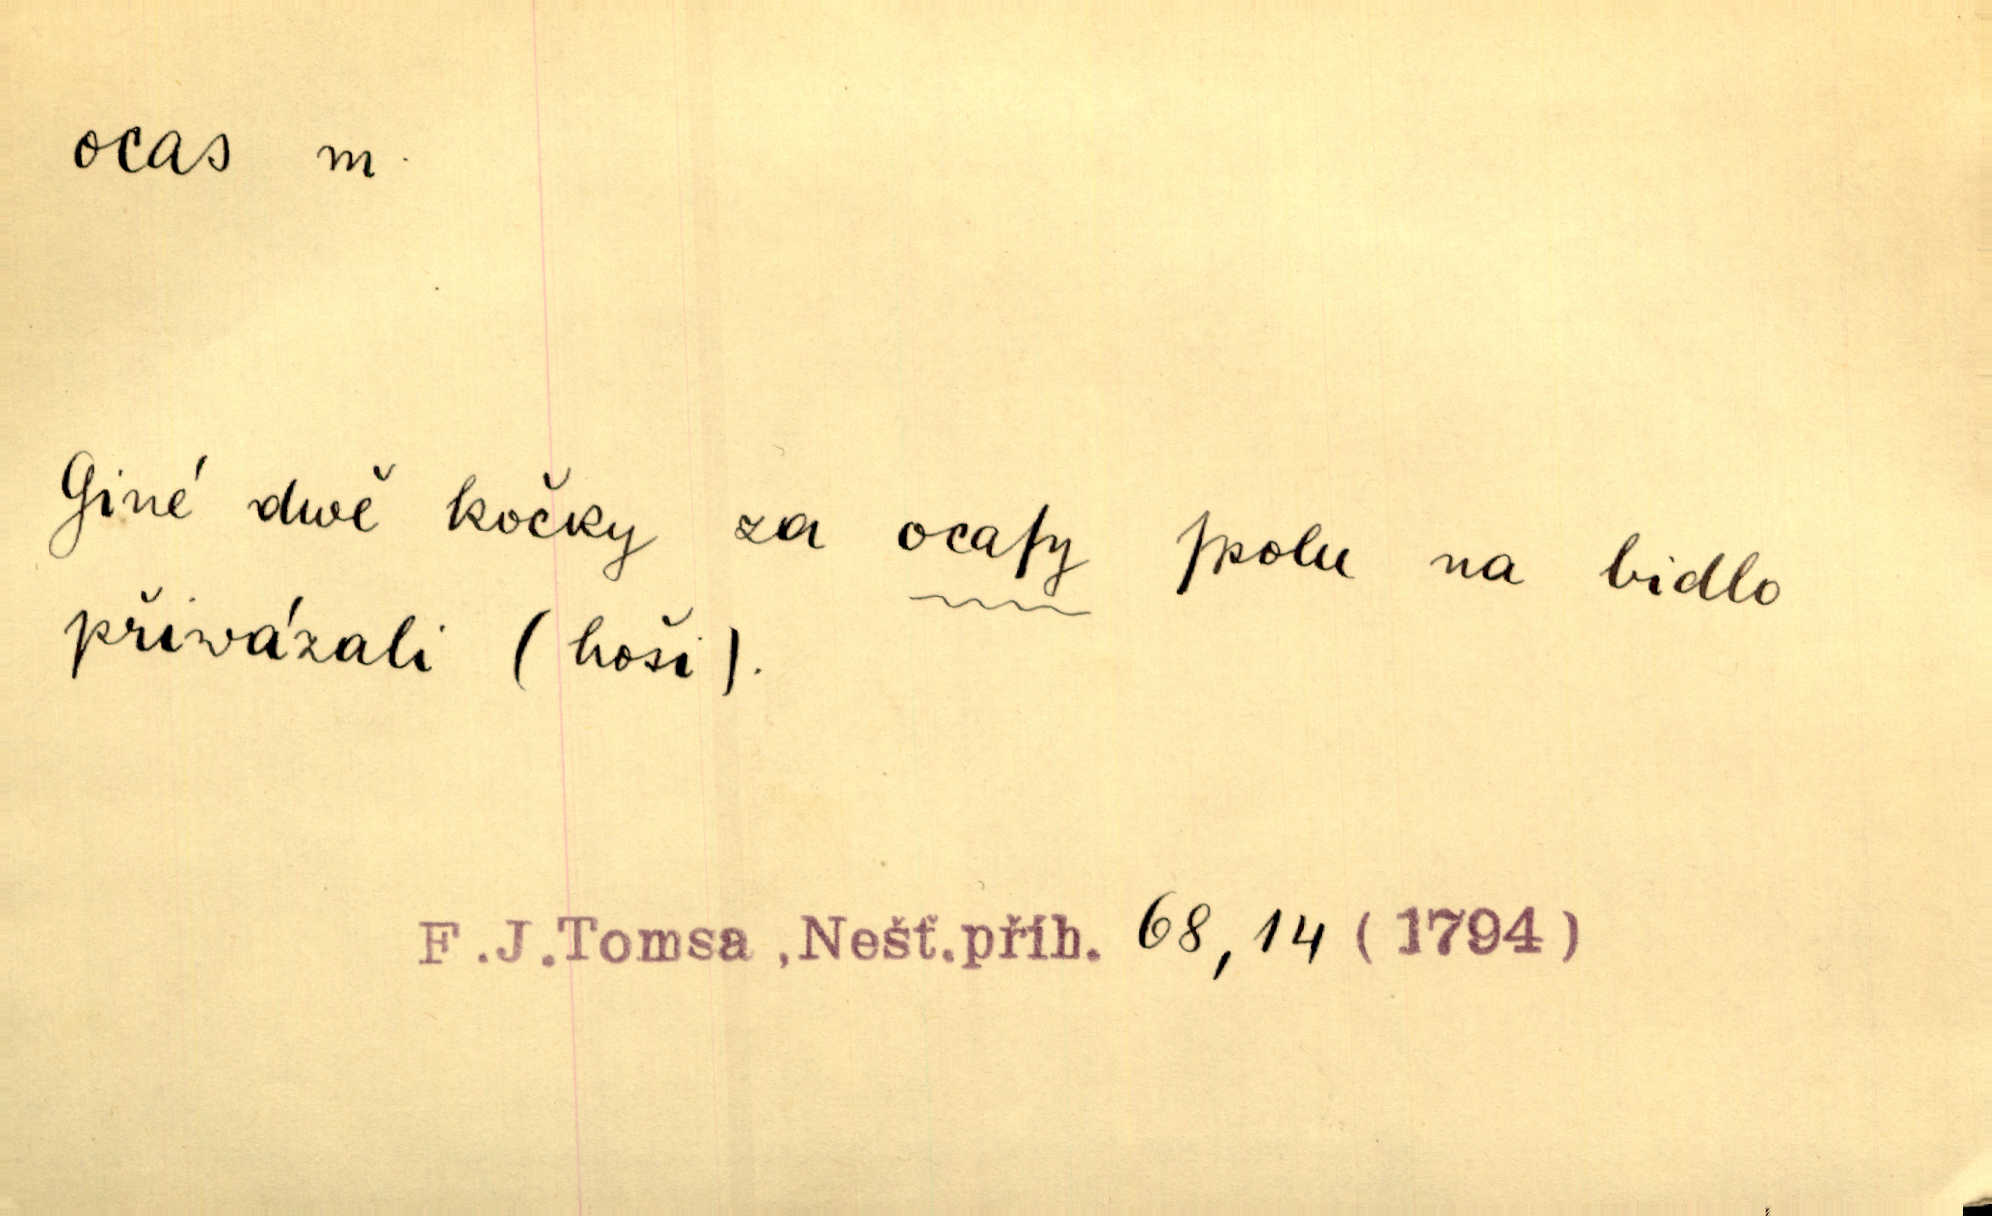 ocas m.
Giné dwě kočky za ocaſy ſpolu na bidlo
přiwázali (hoši).
F.J.Tomsa,Nešť.příh. 68,14 (1794)